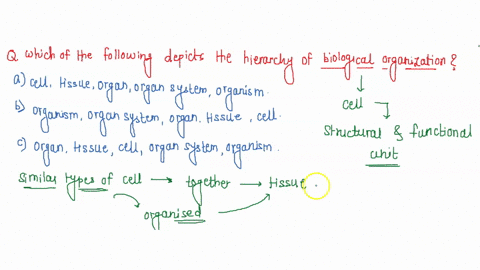 Q which of the following depicts the hierarchy of biological organization?
a) cell, tissue, organ, organ system, organism.
b) organism, organ system, organ. tissue, cell.
c) organ, tissue, cell, organ system, organism.
cell
structural & functional
unit
similar types of cell → together → tissue.
organised